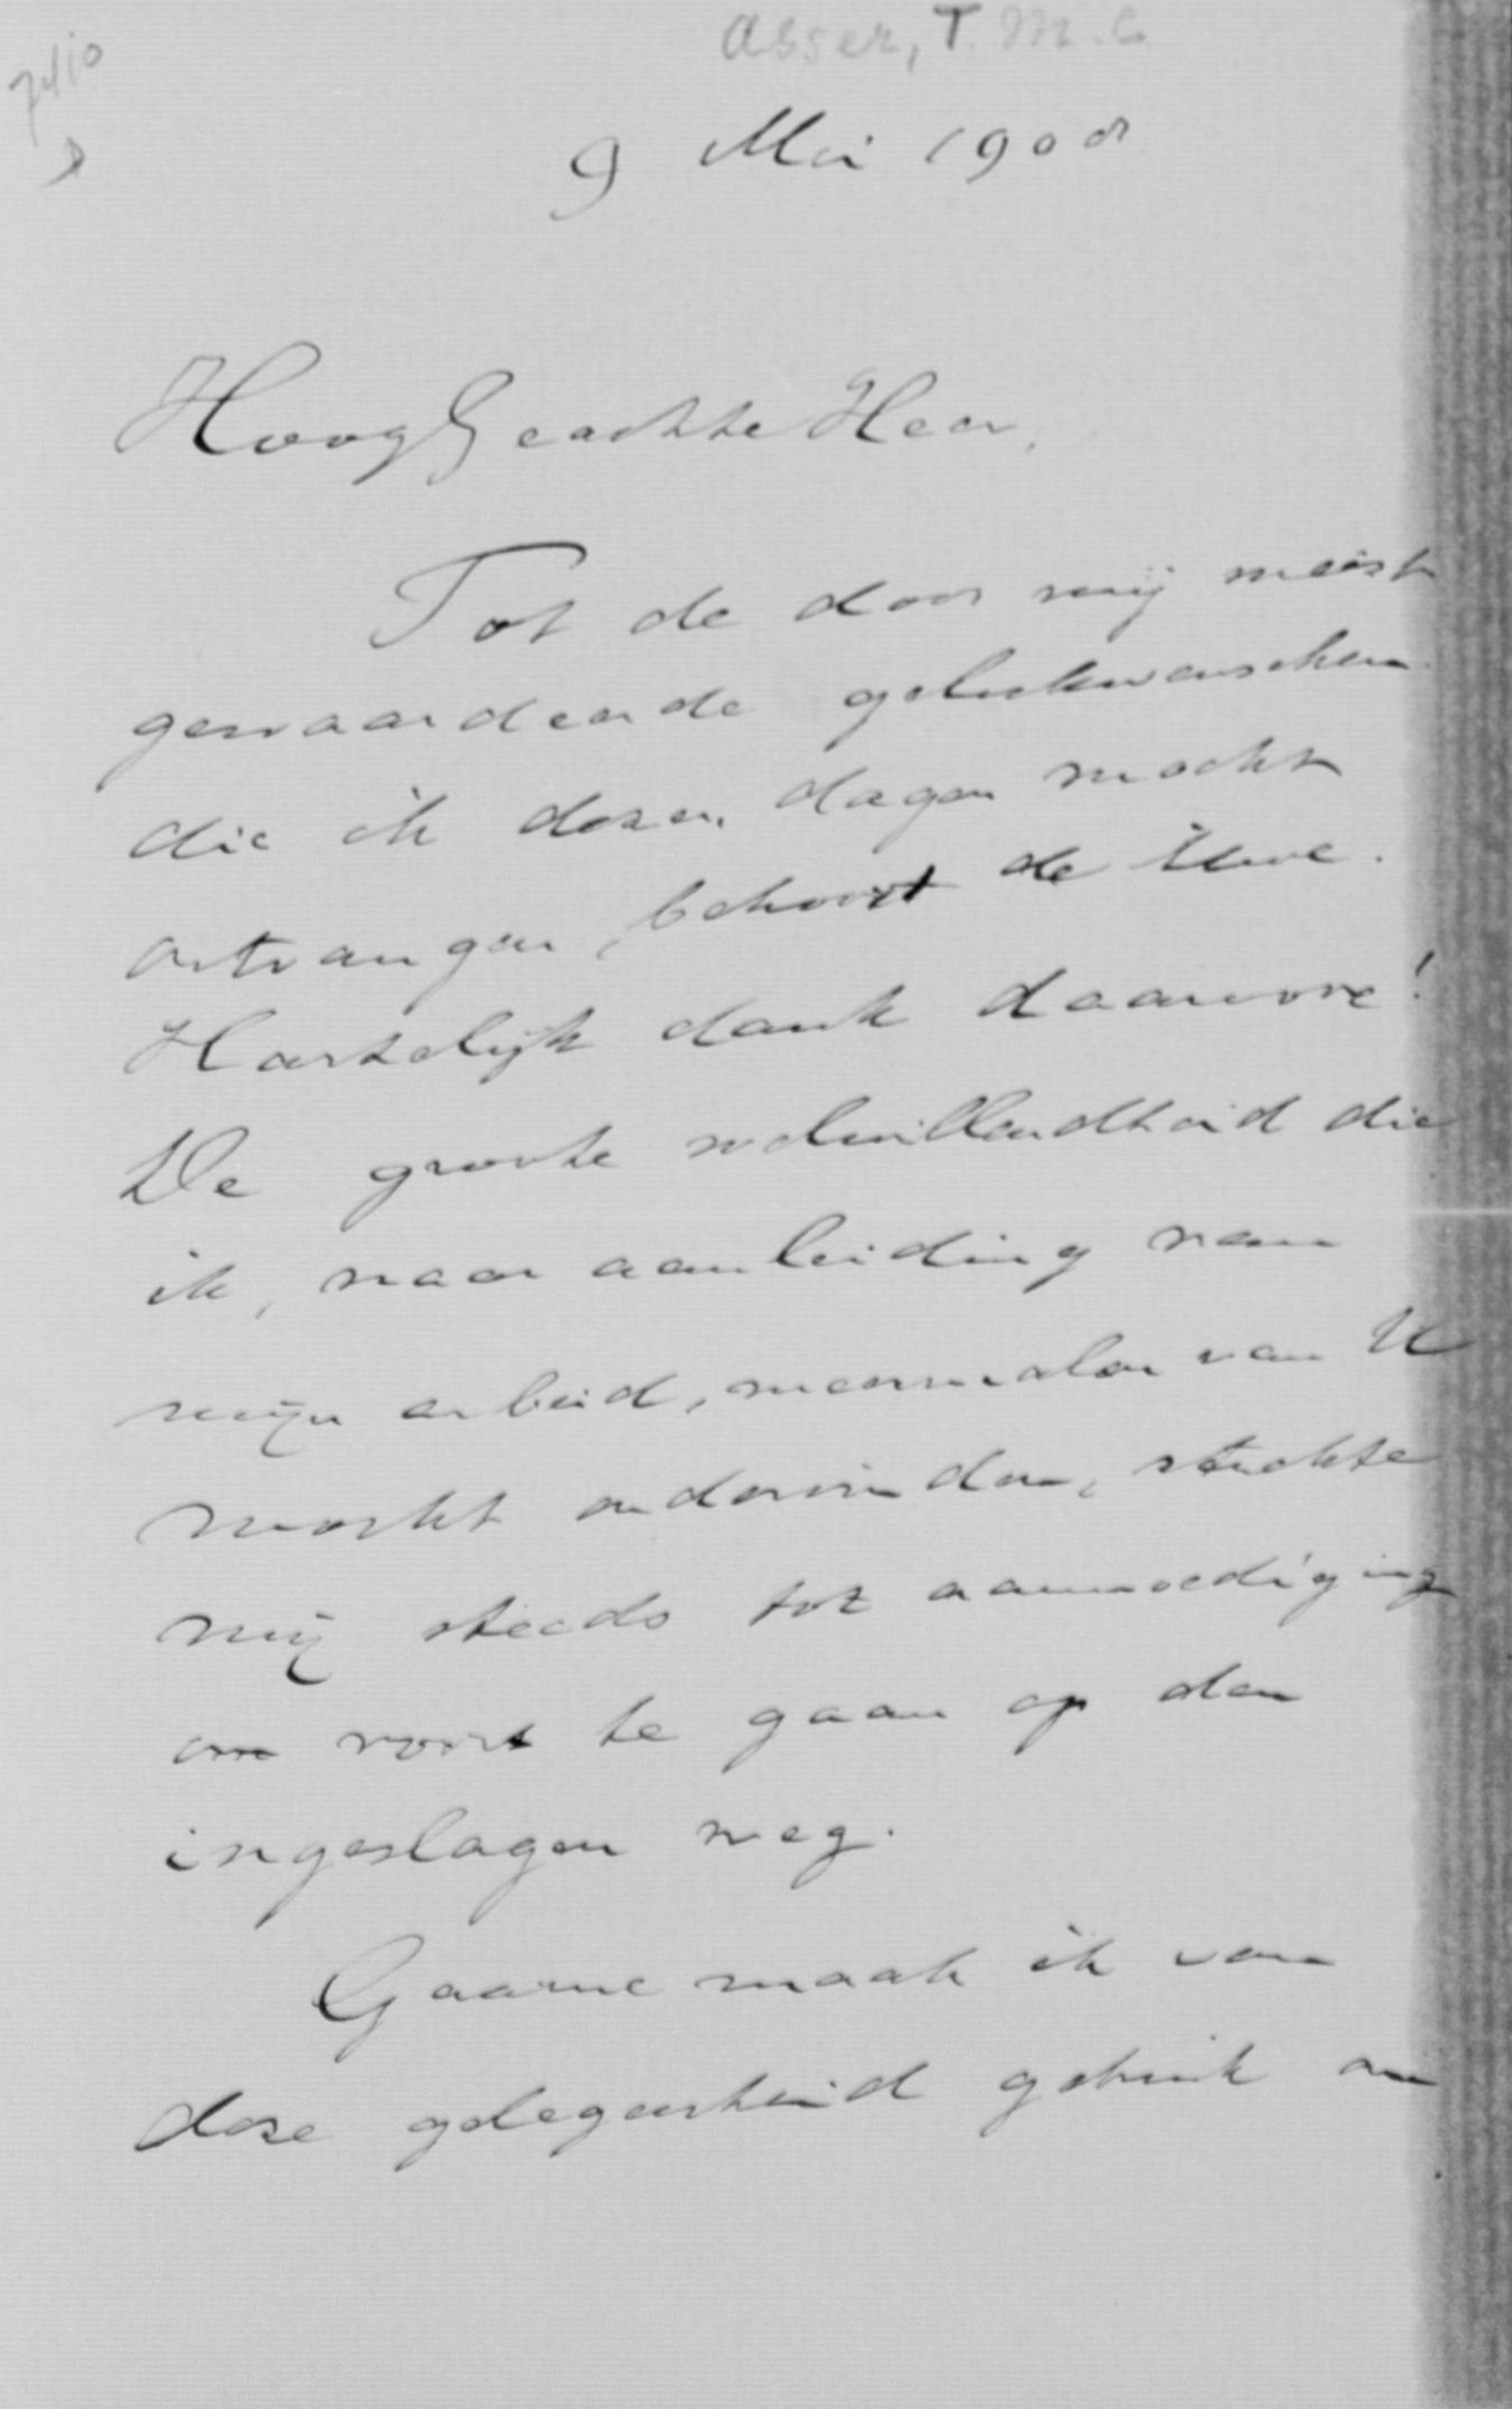 Asser, T. M. C.
7410
9 Mei 1908
HoogGeachte Heer,
Tot de door mij meest
gewaardeerde gelukwenschen
die ik dezer dagen mocht
ontvangen, behoort de Uwe.
Hartelijk dank daarvoor!
De groote welwillendheid die
ik, naar aanleiding van
mijn arbeid, meermalen van U
mocht ondervinden, strekte
mij steeds tot aanmoediging
om voort te gaan op den
ingeslagen weg.
Gaarne maak ik van
deze gelegenheid gebruik om